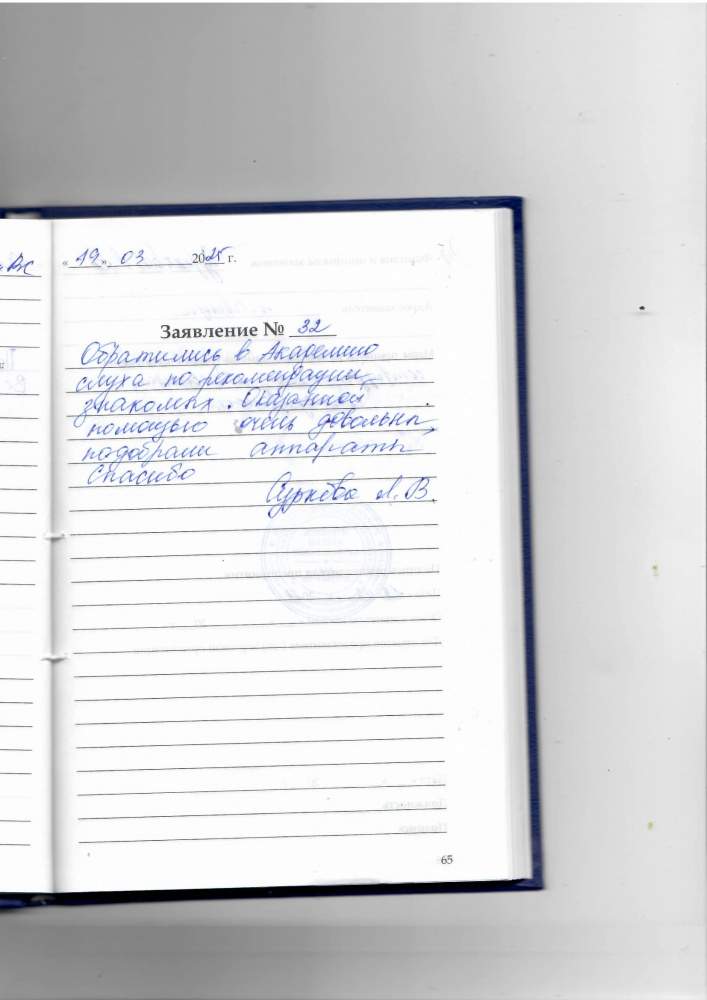 «19» 03 2025 г.
Заявление № 32
Обратились в Академию
слуха по рекомендации
знакомых. Оказанной
помощью очень довольны,
подобрали аппараты
Спасибо
Суркова Л.В.
65